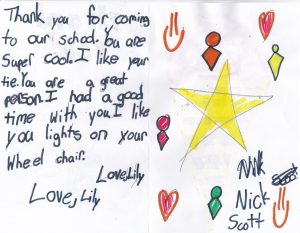 Thank you for coming
to our school. You are
Super cool. I like your
tie. You are a great
person. I had a good
time with you. I like
you lights on your
Wheel chair.
Love, Lily
Love, Lily
Nik
Nick
Scott